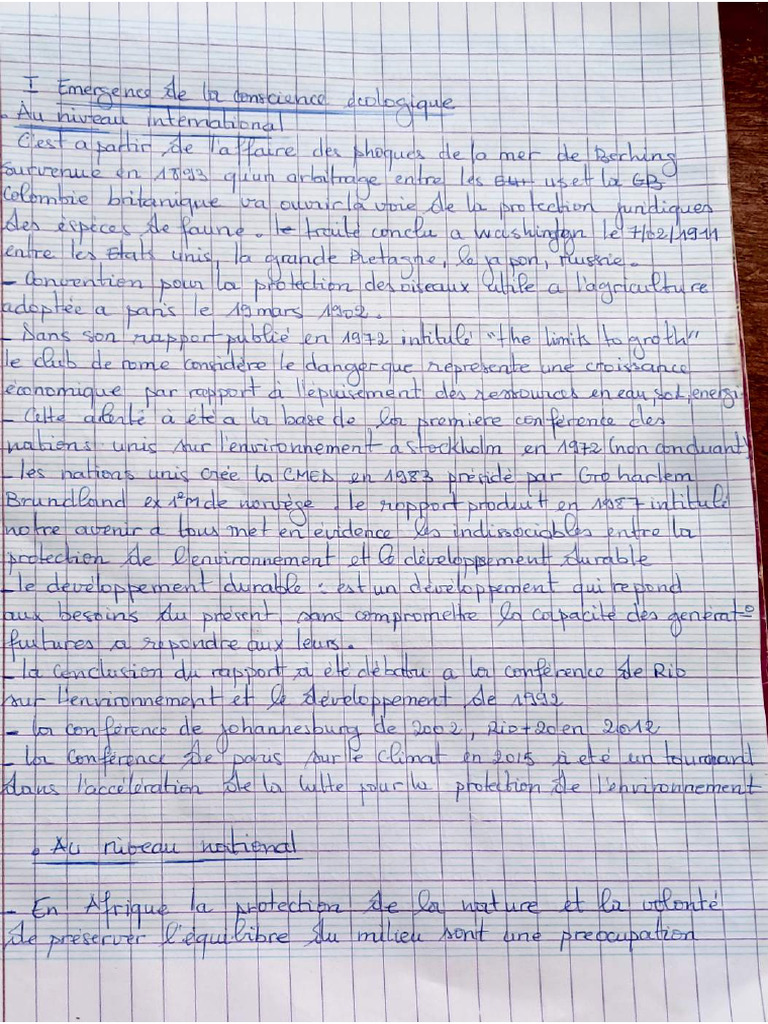 I Emergence de la conscience écologique
. Au niveau international
C'est a partir de l'affaire des phoques de la mer de Berhing
survenue en 1893 qu'un arbitrage entre les us et la GB
Colombie britanique va ouvrir la voie de la protection juridiques
des éspèces de faune. le traité conclu a washington le 7/02/1911
entre les Etats unis, la grande Bretagne, le japon, russie.
- Convention pour la protection des oiseaux utile a l'agriculture
adoptée a paris le 19 mars 1902.
- Dans son rapport publié en 1972 intitulé "the limits to groth"
le club de rome considère le danger que représente une croissance
économique par rapport à l'épuisement des ressources en eau, sol, energi
- Cette alerte à été a la base de la premiere conférence des
nations unis sur l'environnement a stockholm en 1972 (non concluant)
- les nations unis crée la CMED en 1983 présidé par Gro harlem
Brundland ex 1er M de norvège. le rapport produit en 1987 intitulé
notre avenir à tous met en évidence les indissociables entre la
protection de l'environnement et le développement durable
- le développement durable : est un développement qui repond
aux besoins du présent, sans compromettre la capacité des générat°
fultures a repondre aux leurs.
- la conclusion du rapport a été débatu a la conférence de Rio
sur l'environnement et le développement de 1992
- la conférence de johannesburg de 2002, Rio+20 en 2012
- la conférence de paris sur le climat en 2015 à été un tournant
dans l'accélération de la lutte pour la protection de l'environnement
. Au niveau national
- En Afrique la protection de la nature et la volonté
de préserver l'équilibre du milieu sont une préocupation